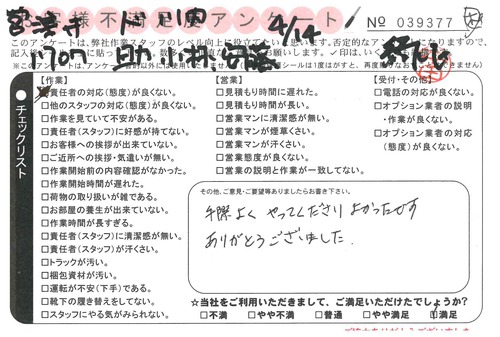 お客様不満足度アンケート
4/14
No 039377
このアンケートは、弊社作業スタッフのレベル向上に役立てたいと思います。否定的なアンケートになりますので、
チェックリスト
【作業】
□責任者の対応(態度)が良くない。
□他のスタッフの対応(態度)が良くない。
□作業を見ていて不安がある。
□責任者(スタッフ)に好感が持てない。
□お客様への挨拶が出来ていない。
□ご近所への挨拶・気遣いが無い。
□作業開始前の内容確認がなかった。
□作業開始時間が遅れた。
□荷物の取り扱いが雑である。
□お部屋の養生が出来ていない。
□作業時間が長すぎる。
□責任者(スタッフ)に清潔感が無い。
□責任者(スタッフ)が汗くさい。
□トラックが汚い。
□梱包資材が汚い。
□運転が不安(下手)である。
□靴下の履き替えをしてない。
□スタッフにやる気がみられない。
【営業】
□見積もり時間に遅れた。
□見積もり時間が長い。
□営業マンに清潔感が無い。
□営業マンが煙草くさい。
□営業マンが汗くさい。
□営業態度が良くない。
□営業の説明と作業が一致してない。
【受付・その他】
□電話の対応が良くない。
□オプション業者の説明
・作業が良くない。
□オプション業者の対応
(態度)が良くない。
その他、ご意見・ご要望等ありましたらお書き下さい。
手際よく やってくださり よかったです
ありがとうございました。
☆当社をご利用いただきまして、ご満足いただけたでしょうか?
□不満 □やや不満 □普通 □やや満足 □満足